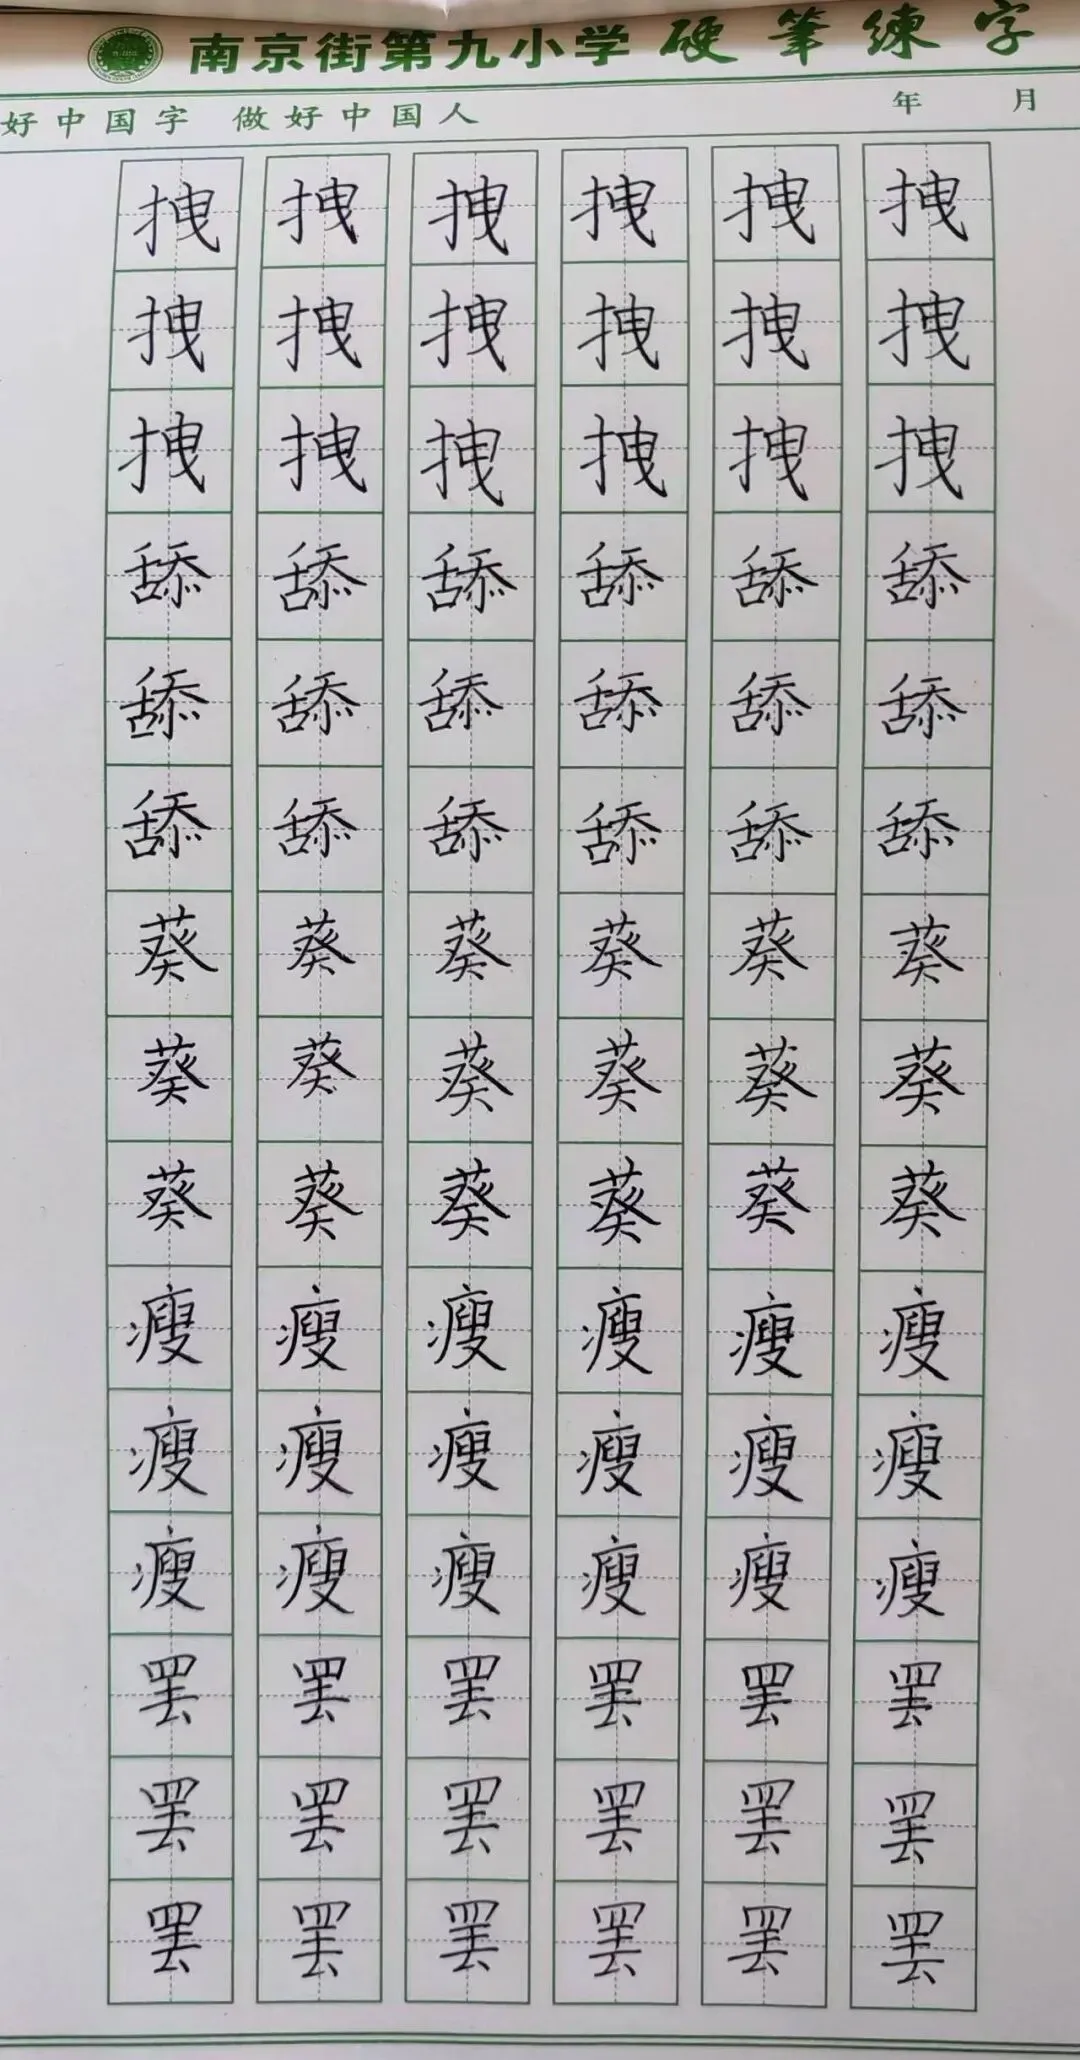 南京街第九小学 硬筆練字
好中国字 做好中国人 年 月
拽 拽 拽 拽 拽 拽
拽 拽 拽 拽 拽 拽
拽 拽 拽 拽 拽 拽
舔 舔 舔 舔 舔 舔
舔 舔 舔 舔 舔 舔
舔 舔 舔 舔 舔 舔
葵 葵 葵 葵 葵 葵
葵 葵 葵 葵 葵 葵
葵 葵 葵 葵 葵 葵
瘦 瘦 瘦 瘦 瘦 瘦
瘦 瘦 瘦 瘦 瘦 瘦
瘦 瘦 瘦 瘦 瘦 瘦
罢 罢 罢 罢 罢 罢
罢 罢 罢 罢 罢 罢
罢 罢 罢 罢 罢 罢